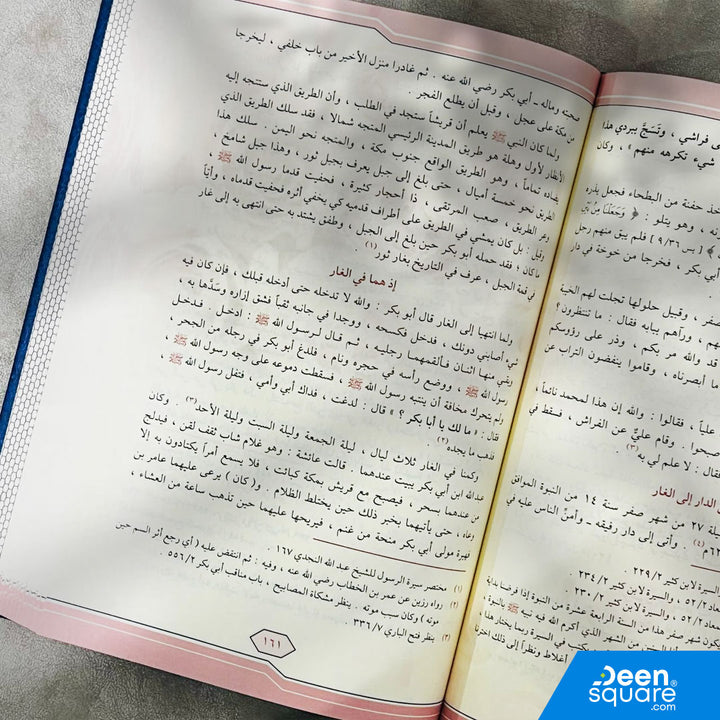 صحبته وماله - أبي بكر رضي الله عنه . ثم غادرا منزل الأخير من باب خلفي ، ليخرجا
من مكة على عجل ، وقبل أن يطلع الفجر .
ولما كان النبي ﷺ يعلم أن قريشاً ستجد في الطلب ، وأن الطريق الذي ستتجه إليه
الأنظار لأول وهلة هو طريق المدينة الرئيسي المتجه شمالا ، فقد سلك الطريق الذي
يضاده تماماً ، وهو الطريق الواقع جنوب مكة ، والمتجه نحو اليمن . سلك هذا
الطريق نحو خمسة أميال ، حتى بلغ إلى جبل يعرف بجبل ثور ، وهذا جبل شامخ ،
وعر الطريق ، صعب المرتقى ، ذا أحجار كثيرة ، فحفيت قدما رسول الله ﷺ ،
وقيل : بل كان يمشي في الطريق على أطراف قدميه كي يخفي أثره فحفيت قدماه ، وأيّاً
ما كان ؛ فقد حمله أبو بكر حين بلغ إلى الجبل ، وطفق يشتد به حتى انتهى به إلى غار
في قمة الجبل ، عرف في التاريخ بغار ثور (١) .
إذ هما في الغار
ولما انتهيا إلى الغار قال أبو بكر : والله لا تدخله حتى أدخله قبلك ، فإن كان فيه
شيء أصابني دونك ، فدخل فكسحه ، ووجدا في جانبه ثقباً فشق إزاره وسدَّها به ،
وبقي منها اثنان فألقمهما رجليه ، ثم قال لرسول الله ﷺ : ادخل . فدخل
رسول الله ﷺ ، ووضع رأسه في حجره ونام ، فلدغ أبو بكر في رجله من الجحر ،
ولم يتحرك مخافة أن ينتبه رسول الله ﷺ ، فسقطت دموعه على وجه رسول الله ﷺ ،
فقال : « ما لك يا أبا بكر ؟ » قال : لدغت ، فداك أبي وأمي ، فتفل رسول الله ﷺ ،
فذهب ما يجده (٢)
وكمنا في الغار ثلاث ليال ، ليلة الجمعة وليلة السبت وليلة الأحد (٣) . وكان
عبد الله ابن أبي بكر يبيت عندهما . قالت عائشة : وهو غلام شاب ثقف لقن ، فيدلج
من عندهما بسحر ، فيصبح مع قريش بمكة كبائت ، فلا يسمع أمراً يكتادون به إلا
وعاه ، حتى يأتيهما بخبر ذلك حين يختلط الظلام . و(كان) يرعى عليهما عامر بن
فهيرة مولى أبي بكر منحة من غنم ، فيريحها عليهما حين تذهب ساعة من العشاء ،
(١) مختصر سيرة الرسول للشيخ عبد الله النجدي ١٦٧ .
(٢) رواه رزين عن عمر بن الخطاب رضي الله عنه ، وفيه : ثم انتقض عليه ( أي رجع أثر السم حين
موته ) وكان سبب موته . ينظر مشكاة المصابيح ، باب مناقب أبي بكر ٥٥٦/٢ .
(٣) ينظر فتح الباري ٣٣٦/٧
١٦١
ى فراشي ، وتَسَجَّ ببردي هذا
شيء تكرهه منهم » ، وكان
خذ حفنة من البطحاء فجعل يذره
، وهو يتلو : ﴿ وَجَعَلْنَا مِنْ بَيْنِ
﴾ [ يس ٩/٣٦ ] فلم يبق منهم رجل
أبي بكر ، فخرجا من خوخة في دار
صفر ، وقبيل حلولها تجلت لهم الخيبة
، ورآهم ببابه فقال : ما تنتظرون ؟
قد والله مر بكم ، وذر على رؤوسكم
ما أبصرناه ، وقاموا ينفضون التراب عن
علياً ، فقالوا : والله إن هذا لمحمد نائماً ،
. وقام عليٌّ عن الفراش ، فسقط في
فقال : لا علم لي به (٣) .
الدار إلى الغار
ليلة ٢٧ من شهر صفر سنة ١٤ من النبوة الموافق
(٤) . وأتى إلى دار رفيقه ـ وأمنّ الناس عليه في
ابن كثير ٢٢٩/٢ .
٥٢/٢ ، والسيرة لابن كثير ٢٣٤/٢ .
٥٢/٢ ، والسيرة لابن كثير ٢٣٠/٢ .
يكون شهر صفر هذا من السنة الرابعة عشرة من النبوة إذا فرضنا بداية
من الشهر الذي أكرم الله فيه نبيه ﷺ بالنبوة ،
Deen
square®
.com